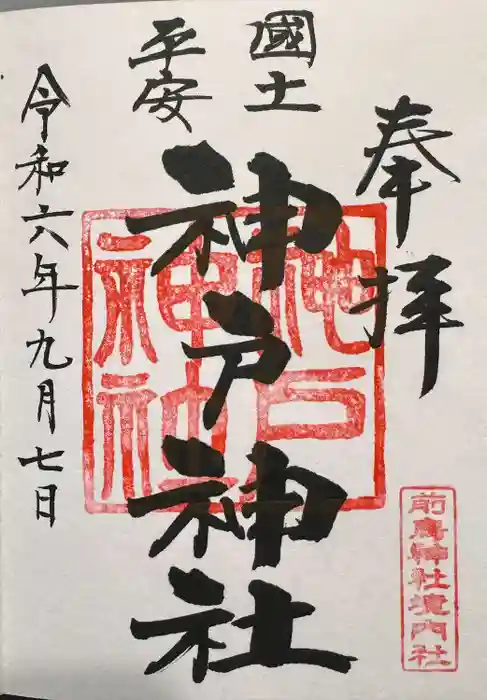 奉拝
國土
平安
神戸神社
令和六年九月七日
神戸
神社
前鳥神社境内社